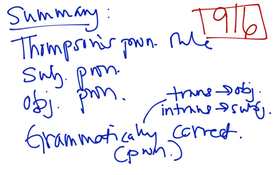 Summary:
916
Thompson's pron. rule
Subj. pron.
Obj. pron.
trans → obj.
intrans → subj.
Grammatically correct.
(pron.)